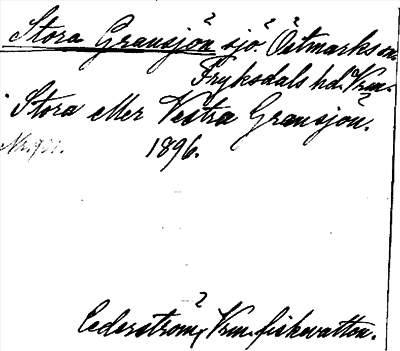 Stora Gransjön sjö. Östmarks sn.
Fryksdals hd. Vrm.
Stora eller Vestra Gransjön.
1896.
Cederström, Vrm. fiskevatten.